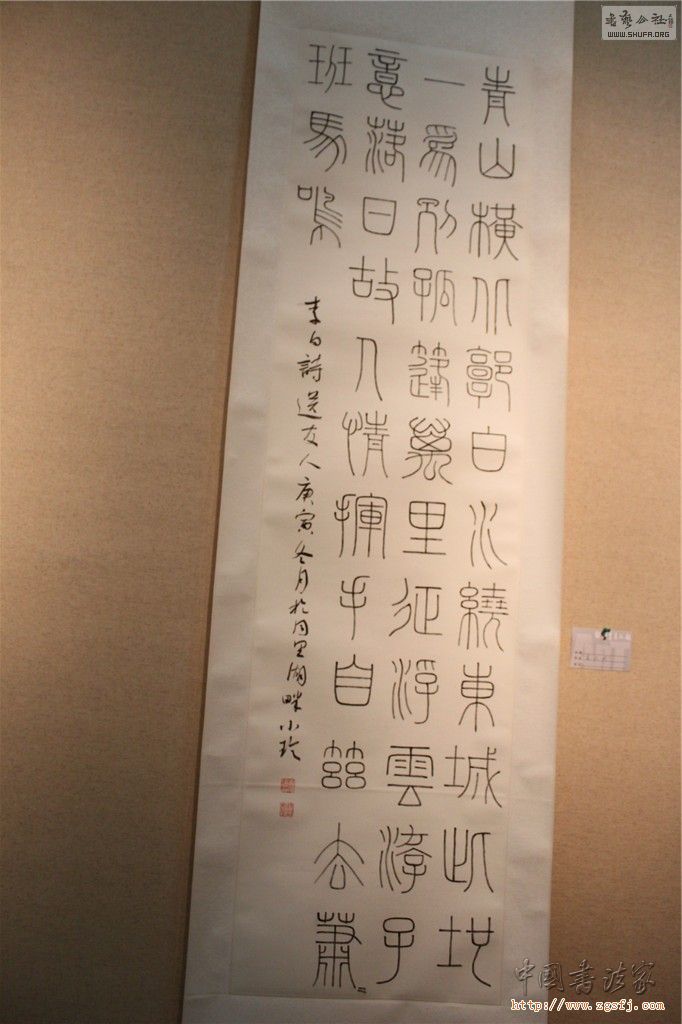 青山橫北郭白水繞東城此地
一爲別孤篷萬里征浮雲游子
意落日故人情揮手自茲去蕭〻
班馬鳴
李白詩送友人庚寅冬月於同里湖畔小玲
書藝公社
WWW.SHUFA.ORG
中國書法家
http://www.zgsfj.com/